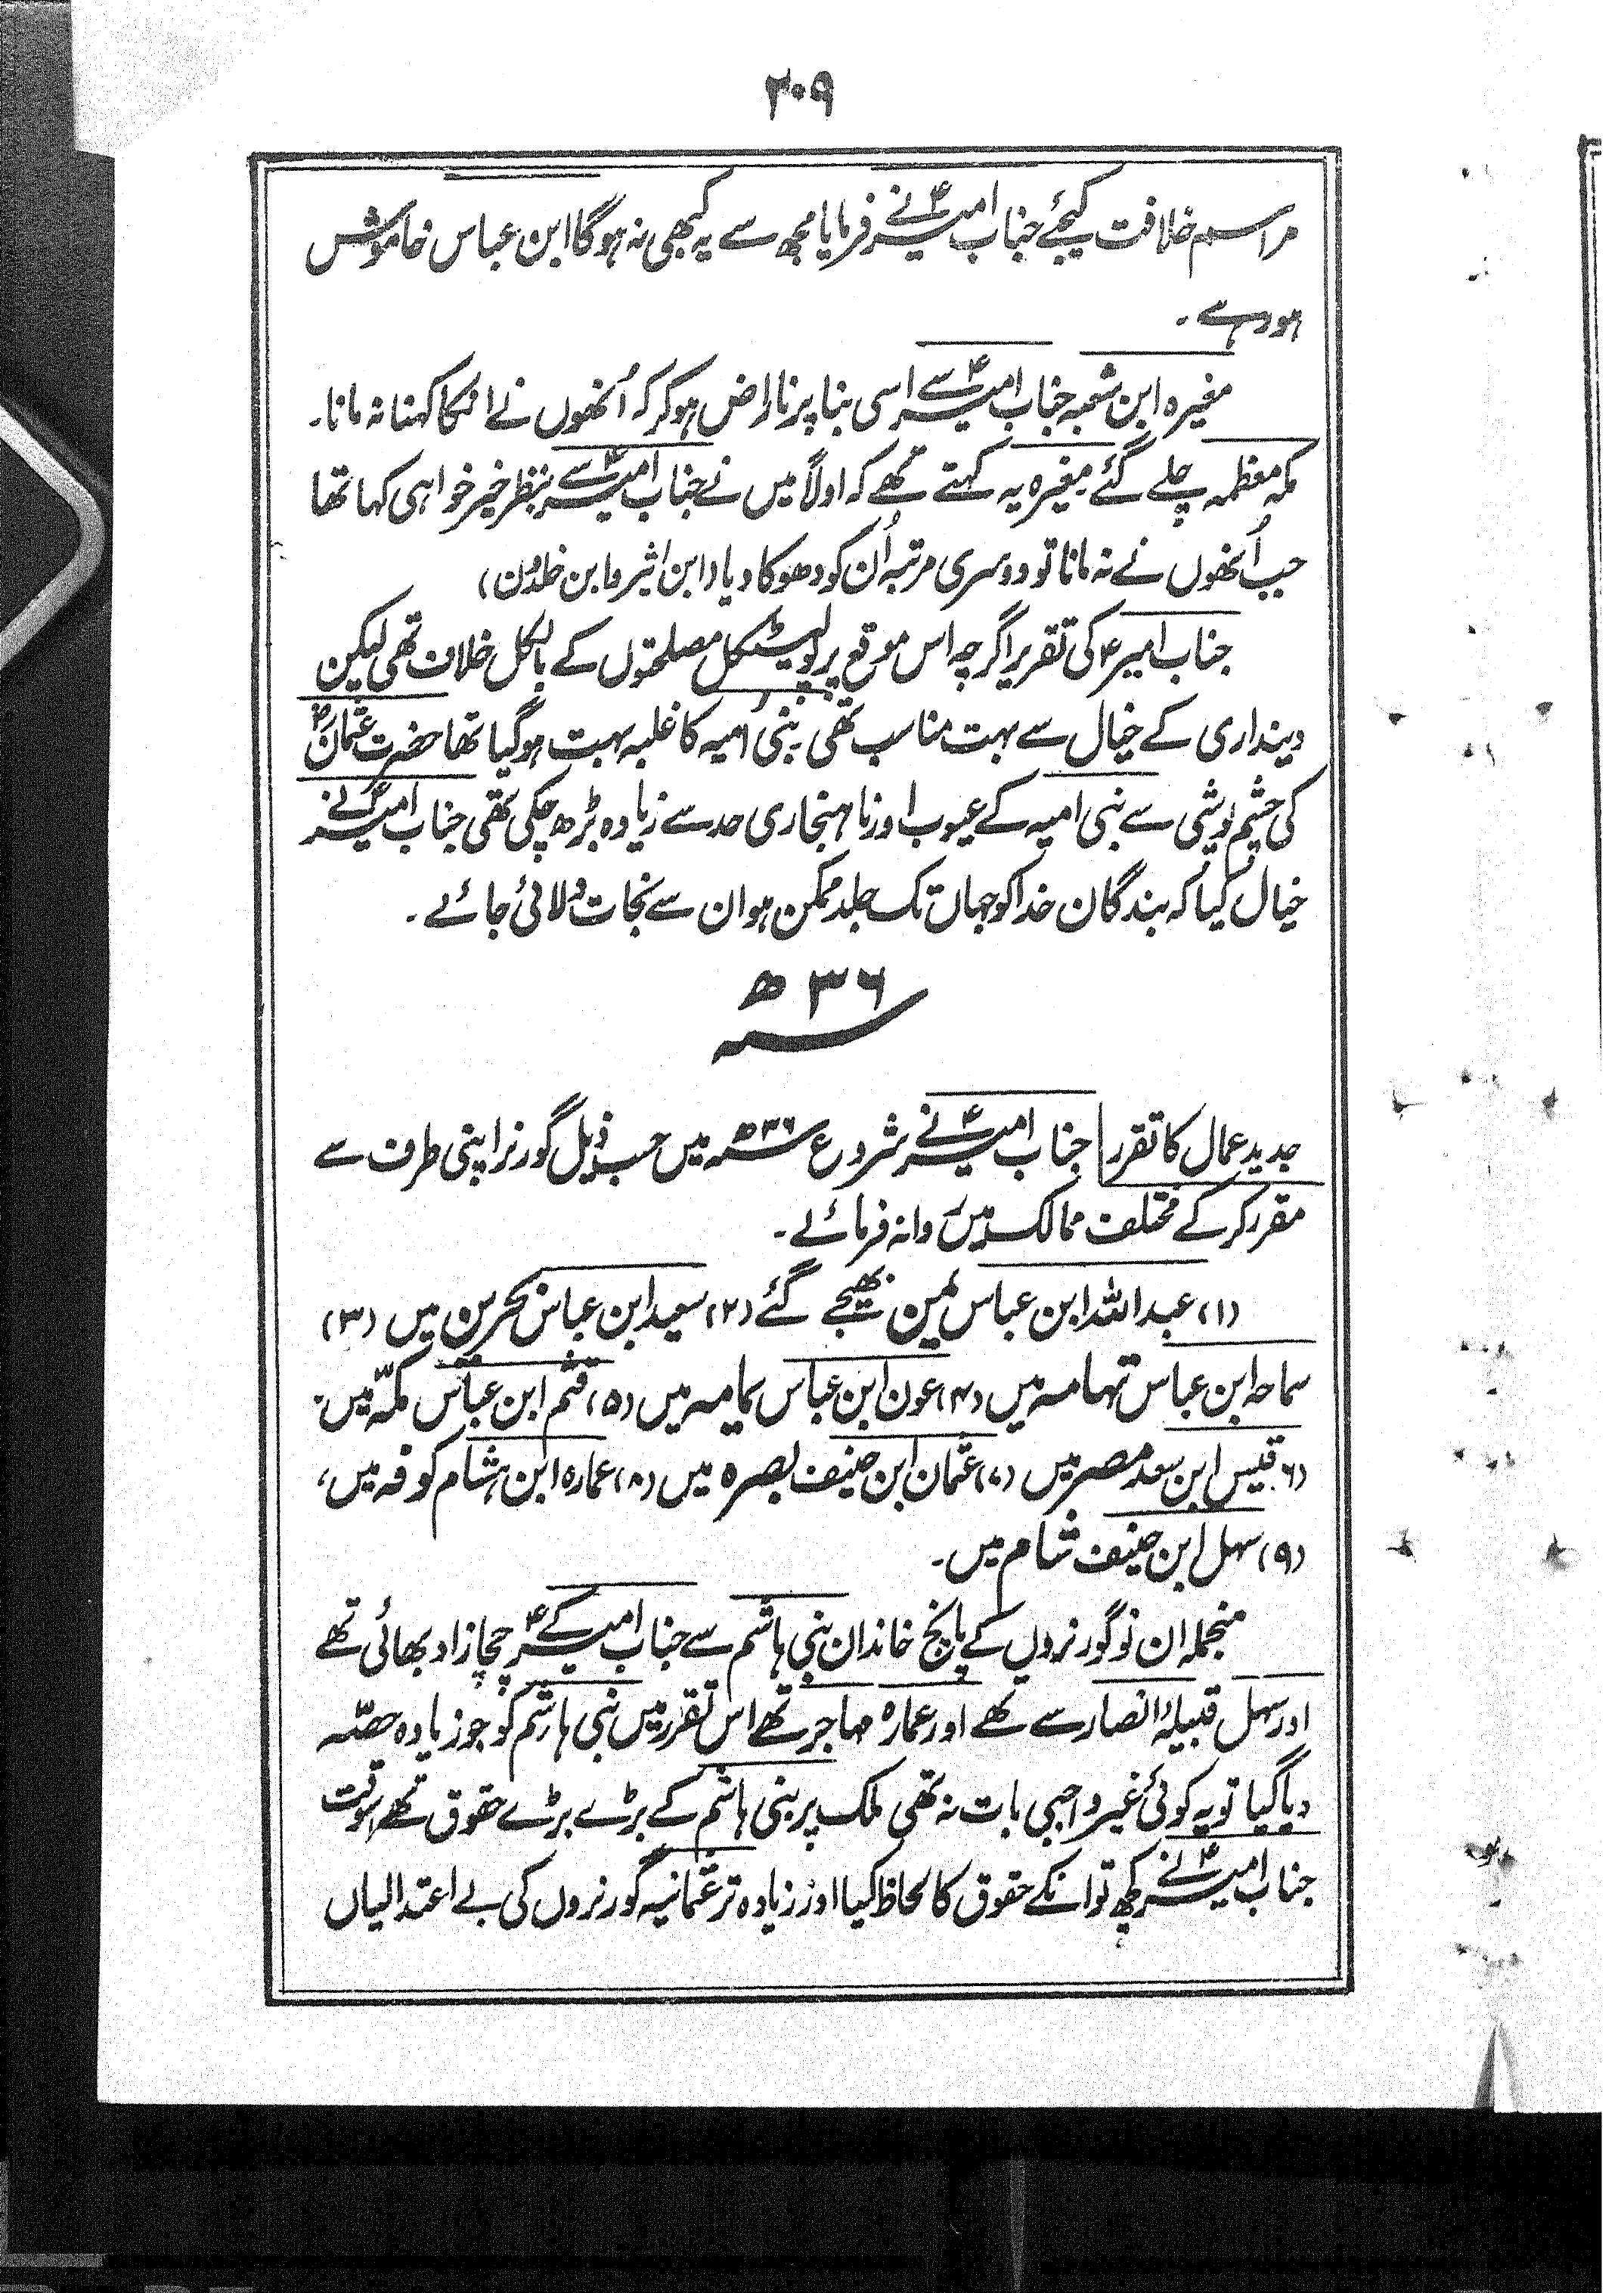 ۲۰۹
مراسم خلافت کیجئے جناب امیرؑ نے فرمایا مجھ سے یہ کبھی نہ ہوگا ابن عباس خاموش
ہو رہے ۔
مغیرہ ابن شعبہ جناب امیرؑ سے اسی بنا پر ناراض ہو کر کہ اُنھوں نے انکا کہنا نہ مانا ۔
مکہ معظمہ چلے گئے مغیرہ یہ کہتے تھے کہ اولاً میں نے جناب امیرؑ سے بنظر خیر خواہی کہا تھا
جب اُنھوں نے نہ مانا تو دوسری مرتبہ اُن کو دھوکا دیا (ابن اثیر و ابن خلدون)
جناب امیرؑ کی تقریر اگرچہ اس موقع پر پولیٹکل مصلحتوں کے بالکل خلاف تھی لیکن
دینداری کے خیال سے بہت مناسب تھی بنی اُمیہ کا غلبہ بہت ہو گیا تھا حضرت عثمانؓ
کی چشم پوشی سے بنی امیہ کے عیوب اور ناہنجاری حد سے زیادہ بڑھ چکی تھی جناب امیرؑ نے
خیال کیا کہ بندگان خدا کو جہاں تک جلد ممکن ہو ان سے نجات دلائی جائے ۔
سنہ ۳۶ ھ
جدید عمال کا تقرر جناب امیرؑ نے شروع سنہ ۳۶ھ میں حسب ذیل گورنر اپنی طرف سے
مقرر کر کے مختلف ممالک میں روانہ فرمائے ۔
(۱) عبداللہ ابن عباس یمن بھیجے گئے (۲) سعید ابن عباس بحرین میں (۳)
سماحہ ابن عباس تہامہ میں (۴) عون ابن عباس یمامہ میں (۵) قثم ابن عباس مکہّ میں ۔
(۶) قیس ابن سعد مصر میں (۷) عثمان ابن حنیف بصرہ میں (۸) عمارہ ابن ہشام کوفہ میں ،
(۹) سہل ابن حنیف شام میں ۔
منجملہ ان نو گورنروں کے پانچ خاندان بنی ہاشم سے جناب امیرؑ کے چچا زاد بھائی تھے
اور سہل قبیلۂ انصار سے تھے اور عمارہ مہاجر تھے اس تقرر میں بنی ہاشم کو جو زیادہ حصّہ
دیا گیا تو یہ کوئی غیر واجبی بات نہ تھی ملک پر بنی ہاشم کے بڑے بڑے حقوق تھے اسوقت
جناب امیرؑ نے کچھ تو انکے حقوق کا لحاظ کیا اور زیادہ تر عثمانیہ گورنروں کی بے اعتدالیاں